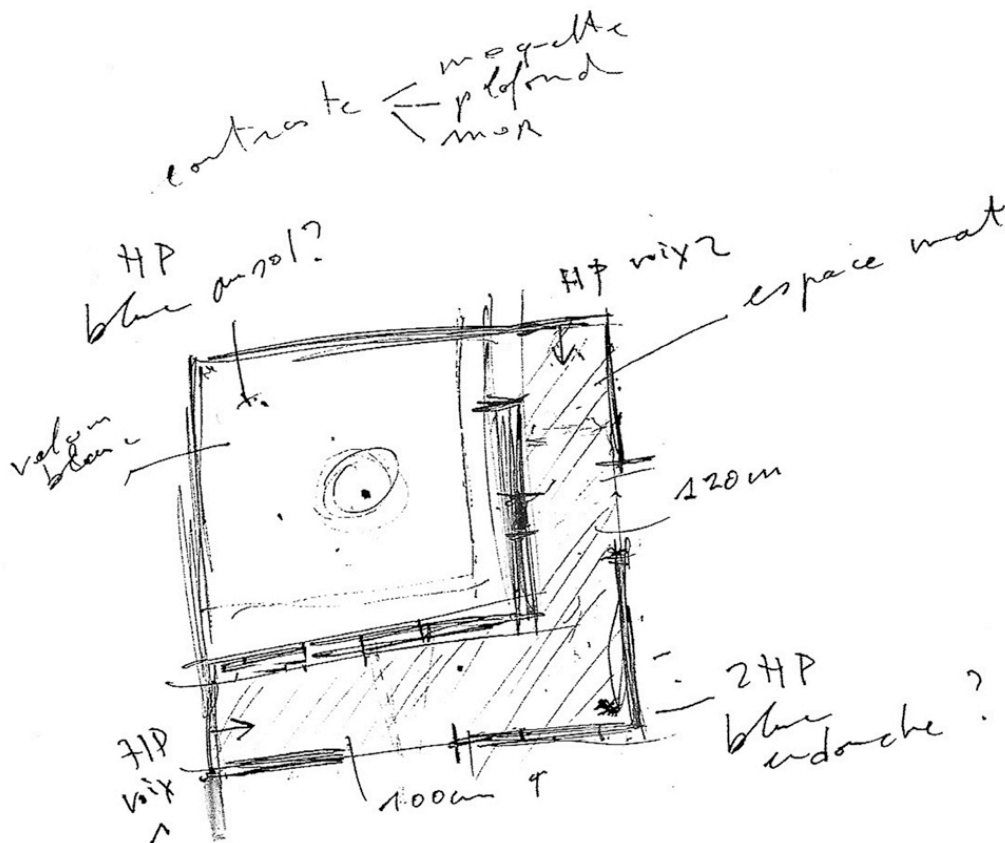 contraste
moquette
plafond
mur
HP
blue au sol?
HP voix 2
espace mat
velum
blanc
120cm
2HP
blue
en douche ?
HP
voix
1
100cm